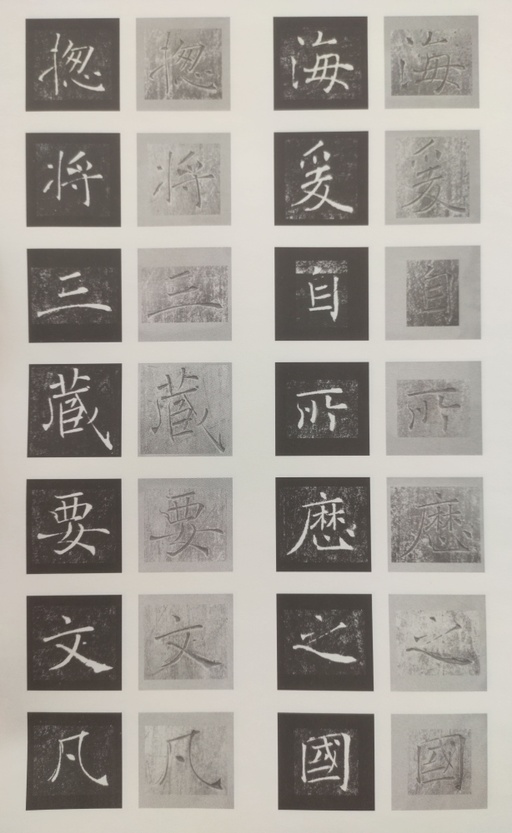 海爰自所歷之國
海爰自所歷之國
揔将三蔵要文凡
揔将三蔵要文凡